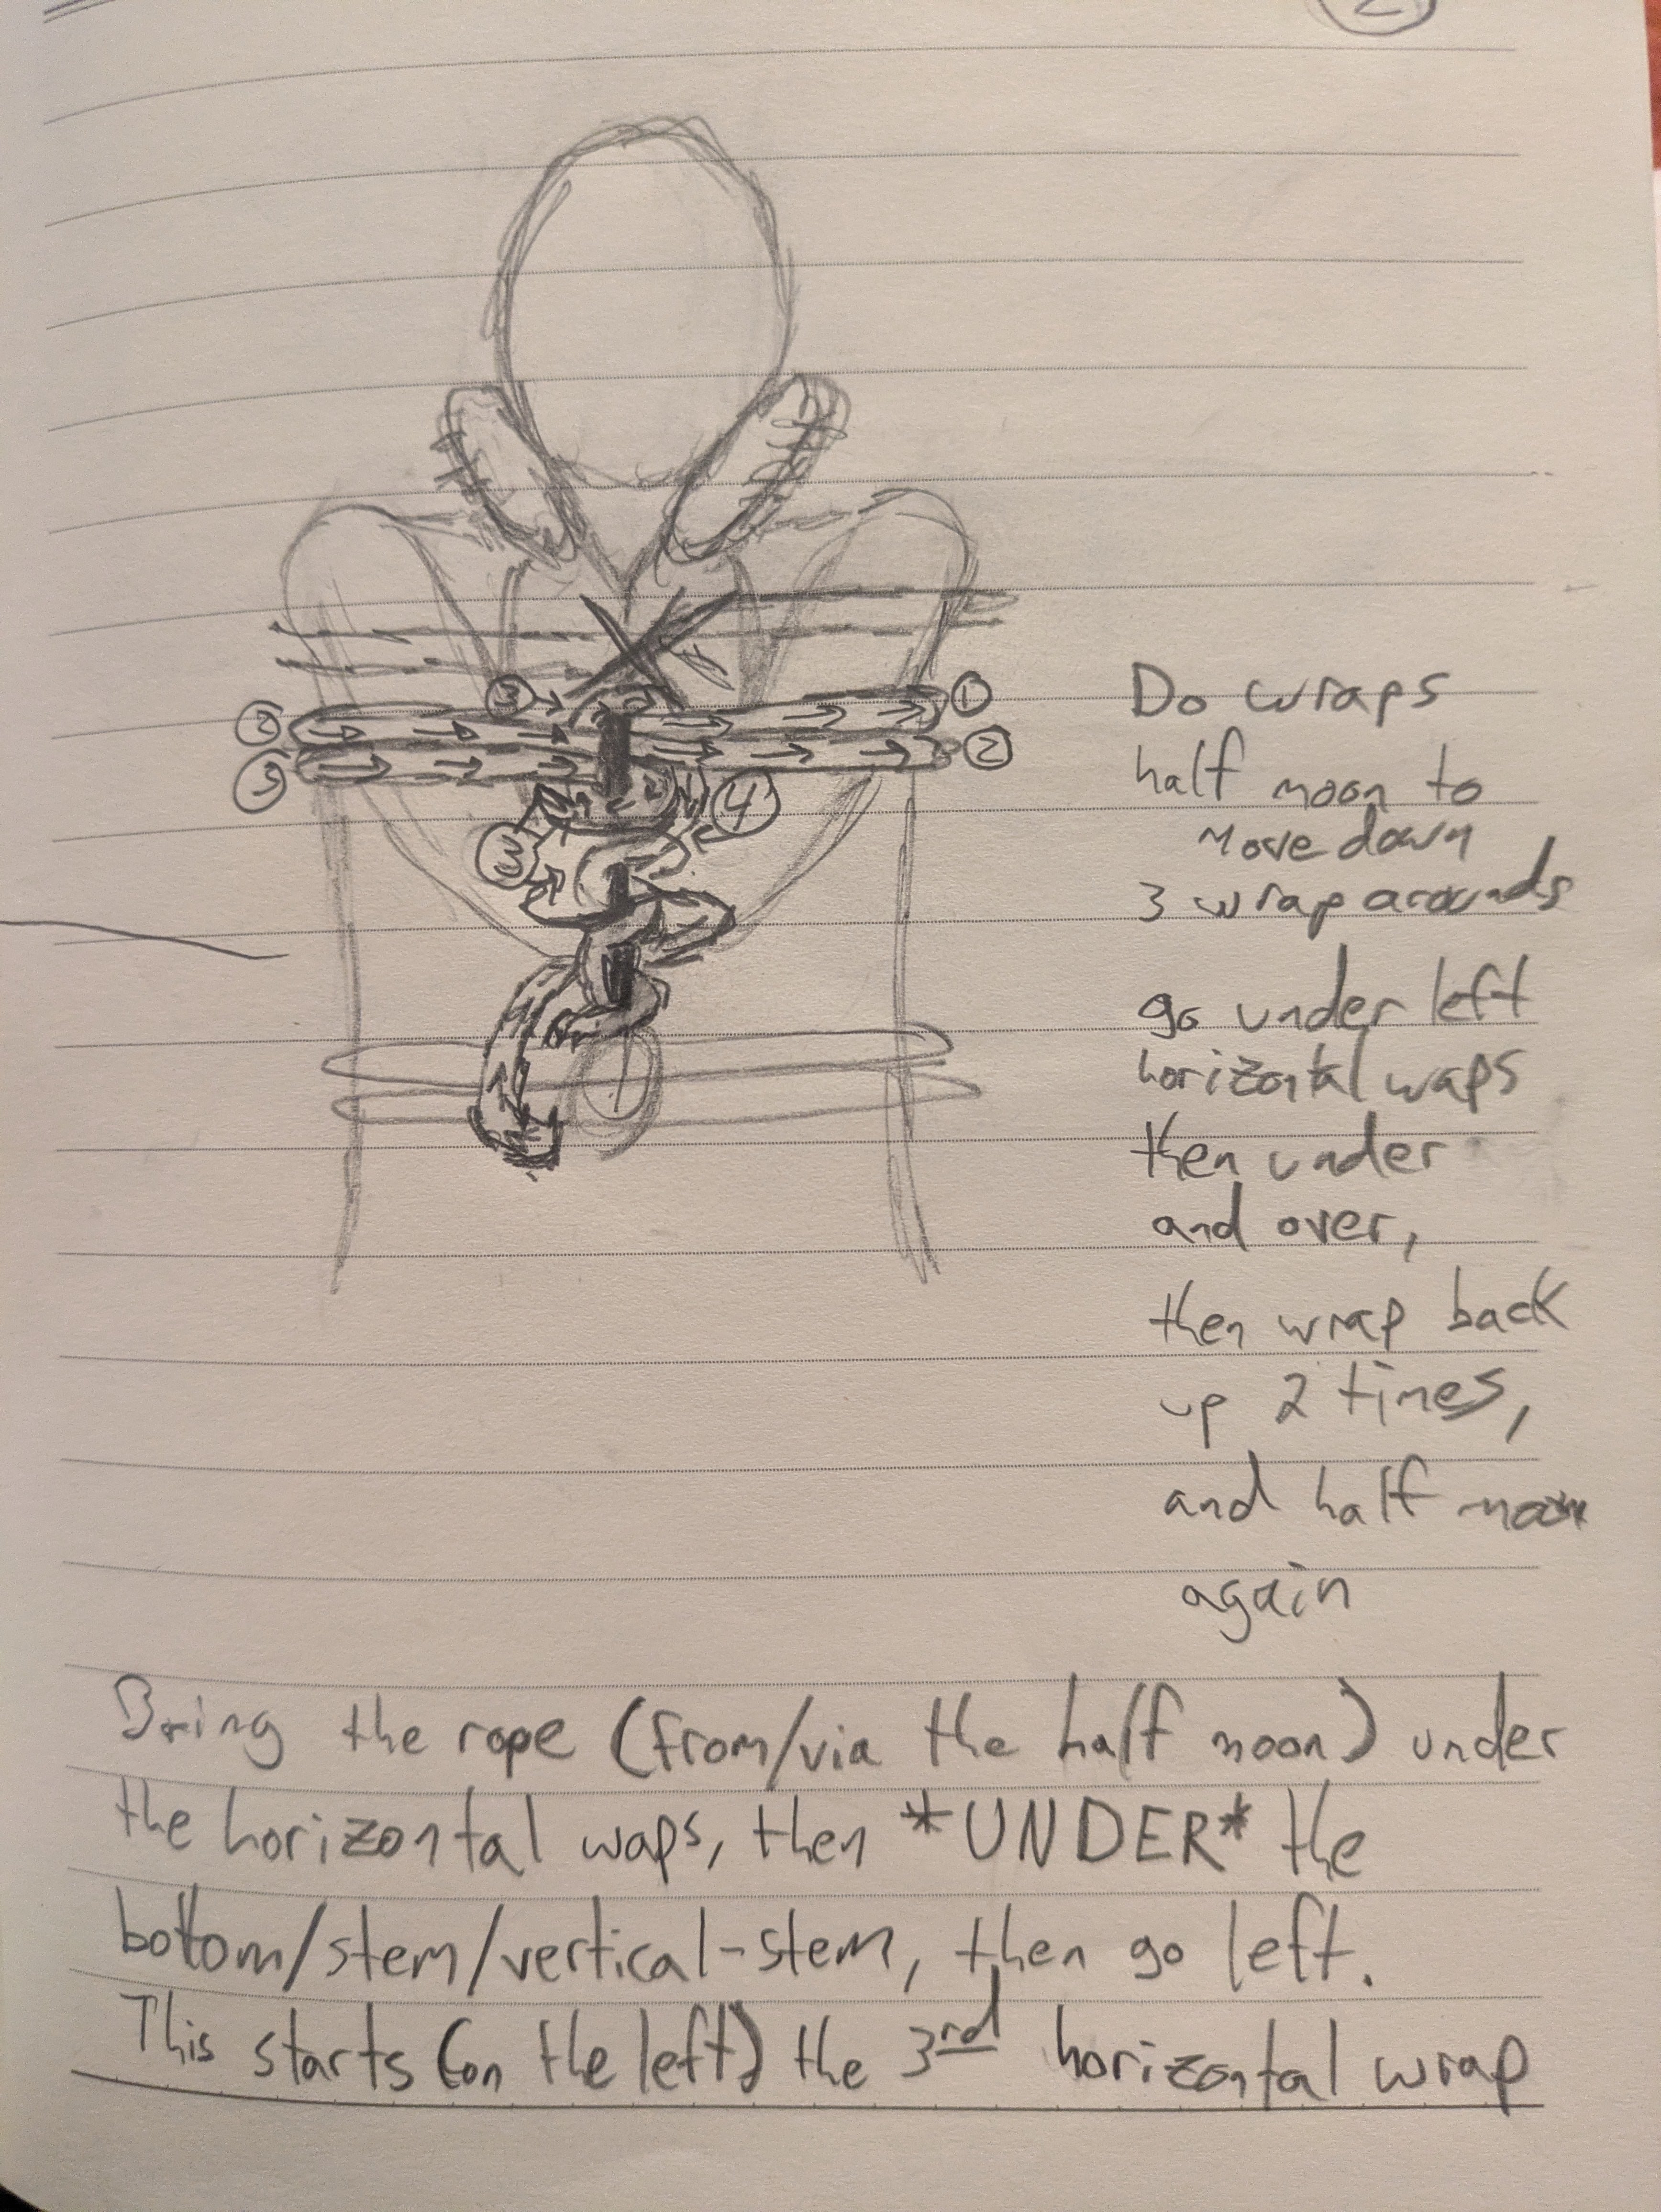 2
③
②
①
③
②
④
③
Do wraps
half moon to
move down
3 wrap arounds
go under left
horizontal waps
then under
and over,
then wrap back
up 2 times,
and half moon
again
Bring the rope (from/via the half moon) under
the horizontal waps, then *UNDER* the
bottom/stem/vertical-stem, then go left.
This starts (on the left) the 3rd horizontal wrap